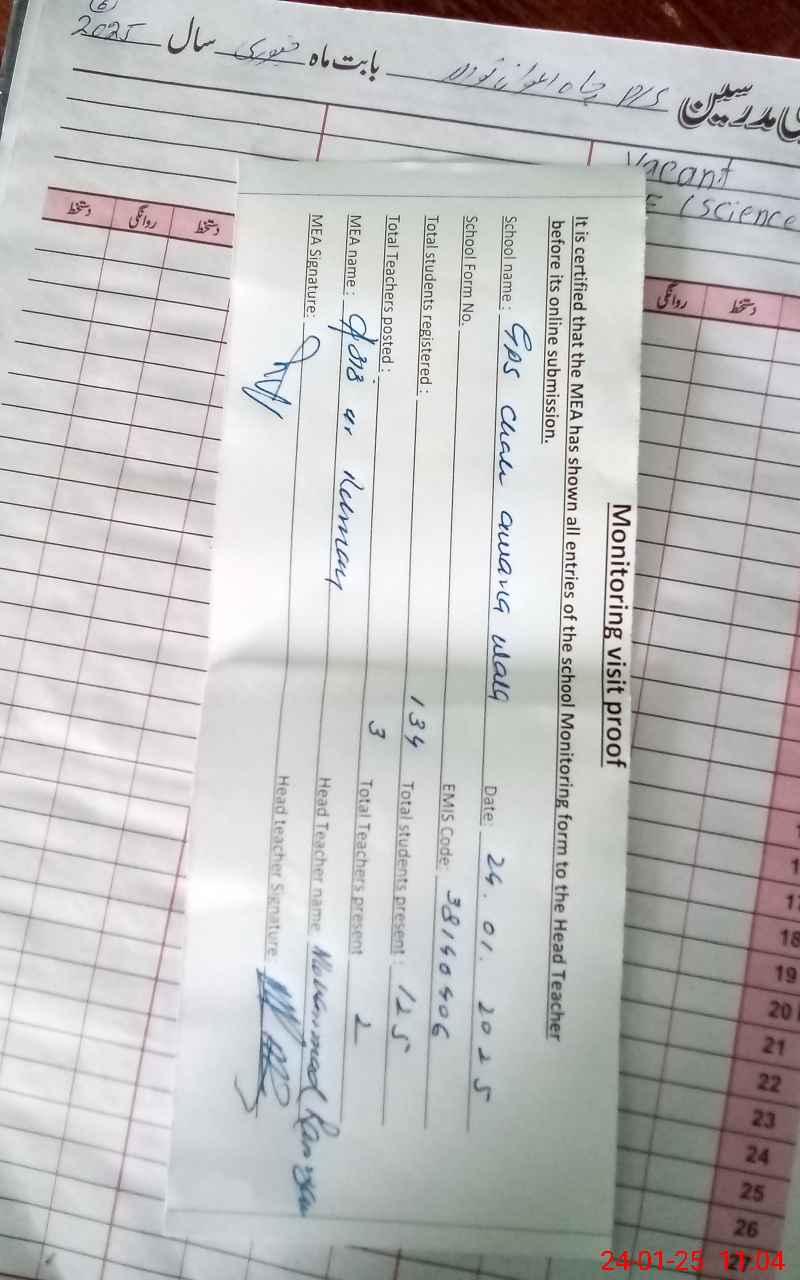 2025 سال جنوری بابت ماہ P/S چاہ اعواناں والا مدرسین
Vacant
(Science
دستخط روانگی دستخط
روانگی دستخط
Monitoring visit proof
It is certified that the MEA has shown all entries of the school Monitoring form to the Head Teacher
before its online submission.
School name : GPS Chah awana wala Date: 24.01.2025
School Form No. EMIS Code: 38140406
Total students registered : 134 Total students present : 125
Total Teachers posted : 3 Total Teachers present 2
MEA name : ur Rehman Head Teacher name Muhammad Ramzan
MEA Signature: Head teacher Signature
17
18
19
20
21
22
23
24
25
26
27
24-01-25 11:04